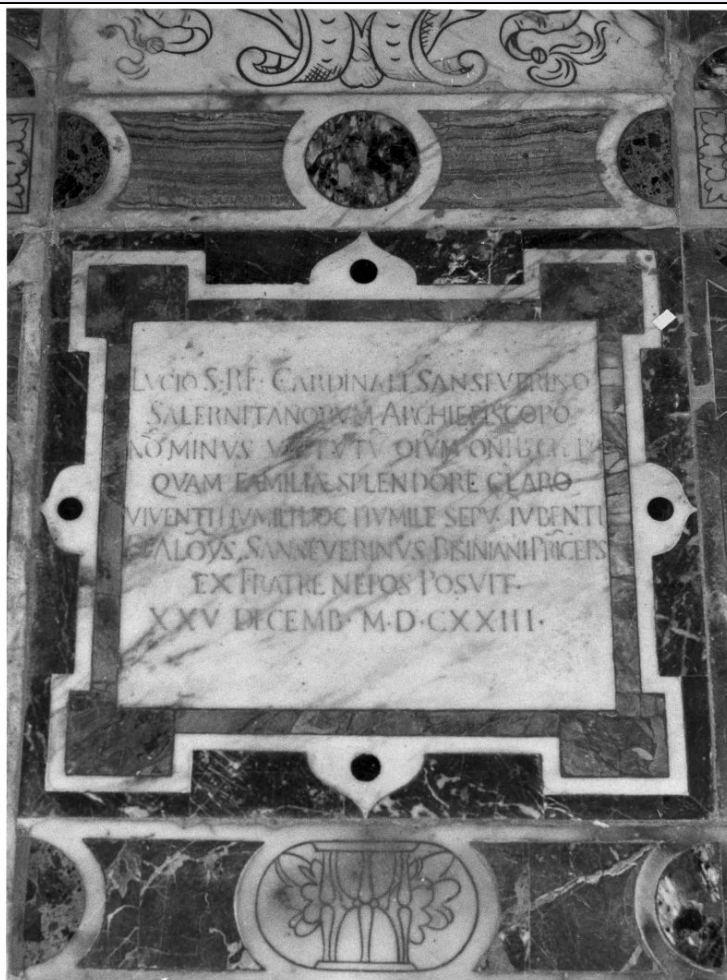 LVCIO S·RE· CARDINALI SANSEVERINO
SALERNITANORVM ARCHIEPISCOPO
NŌ MINVS VIRTVTŪ OĪVM
QVAM FAMILIÆ SPLENDORE CLARO
VIVENTI HVMILI HOC HVMILE SEPV· IVBENTI
ALOYS· SANSEVERINVS BISINIANI PRĪCEPS
EX FRATRE NEPOS POSVIT·
XXV DECEMB· M·D·CXXIII·